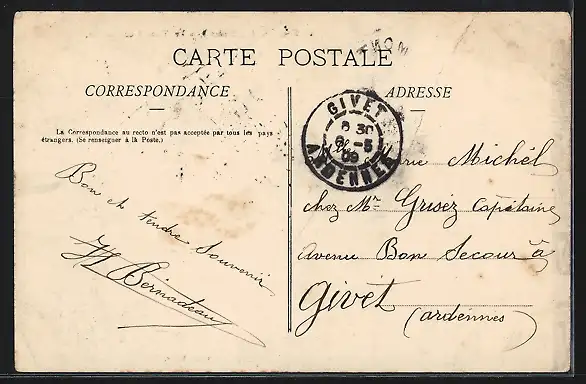 CARTE POSTALE
CORRESPONDANCE
ADRESSE
La Correspondance au recto n'est pas acceptée par tous les pays
étrangers. (Se renseigner à la Poste.)
Bon et tendre Souvenir
Bernadeau
GIVET
8 30
-5
09
ARDENNES
Marie Michel
chez Mr Grisez Capitaine
avenue Bon Secour à
Givet
(ardennes)